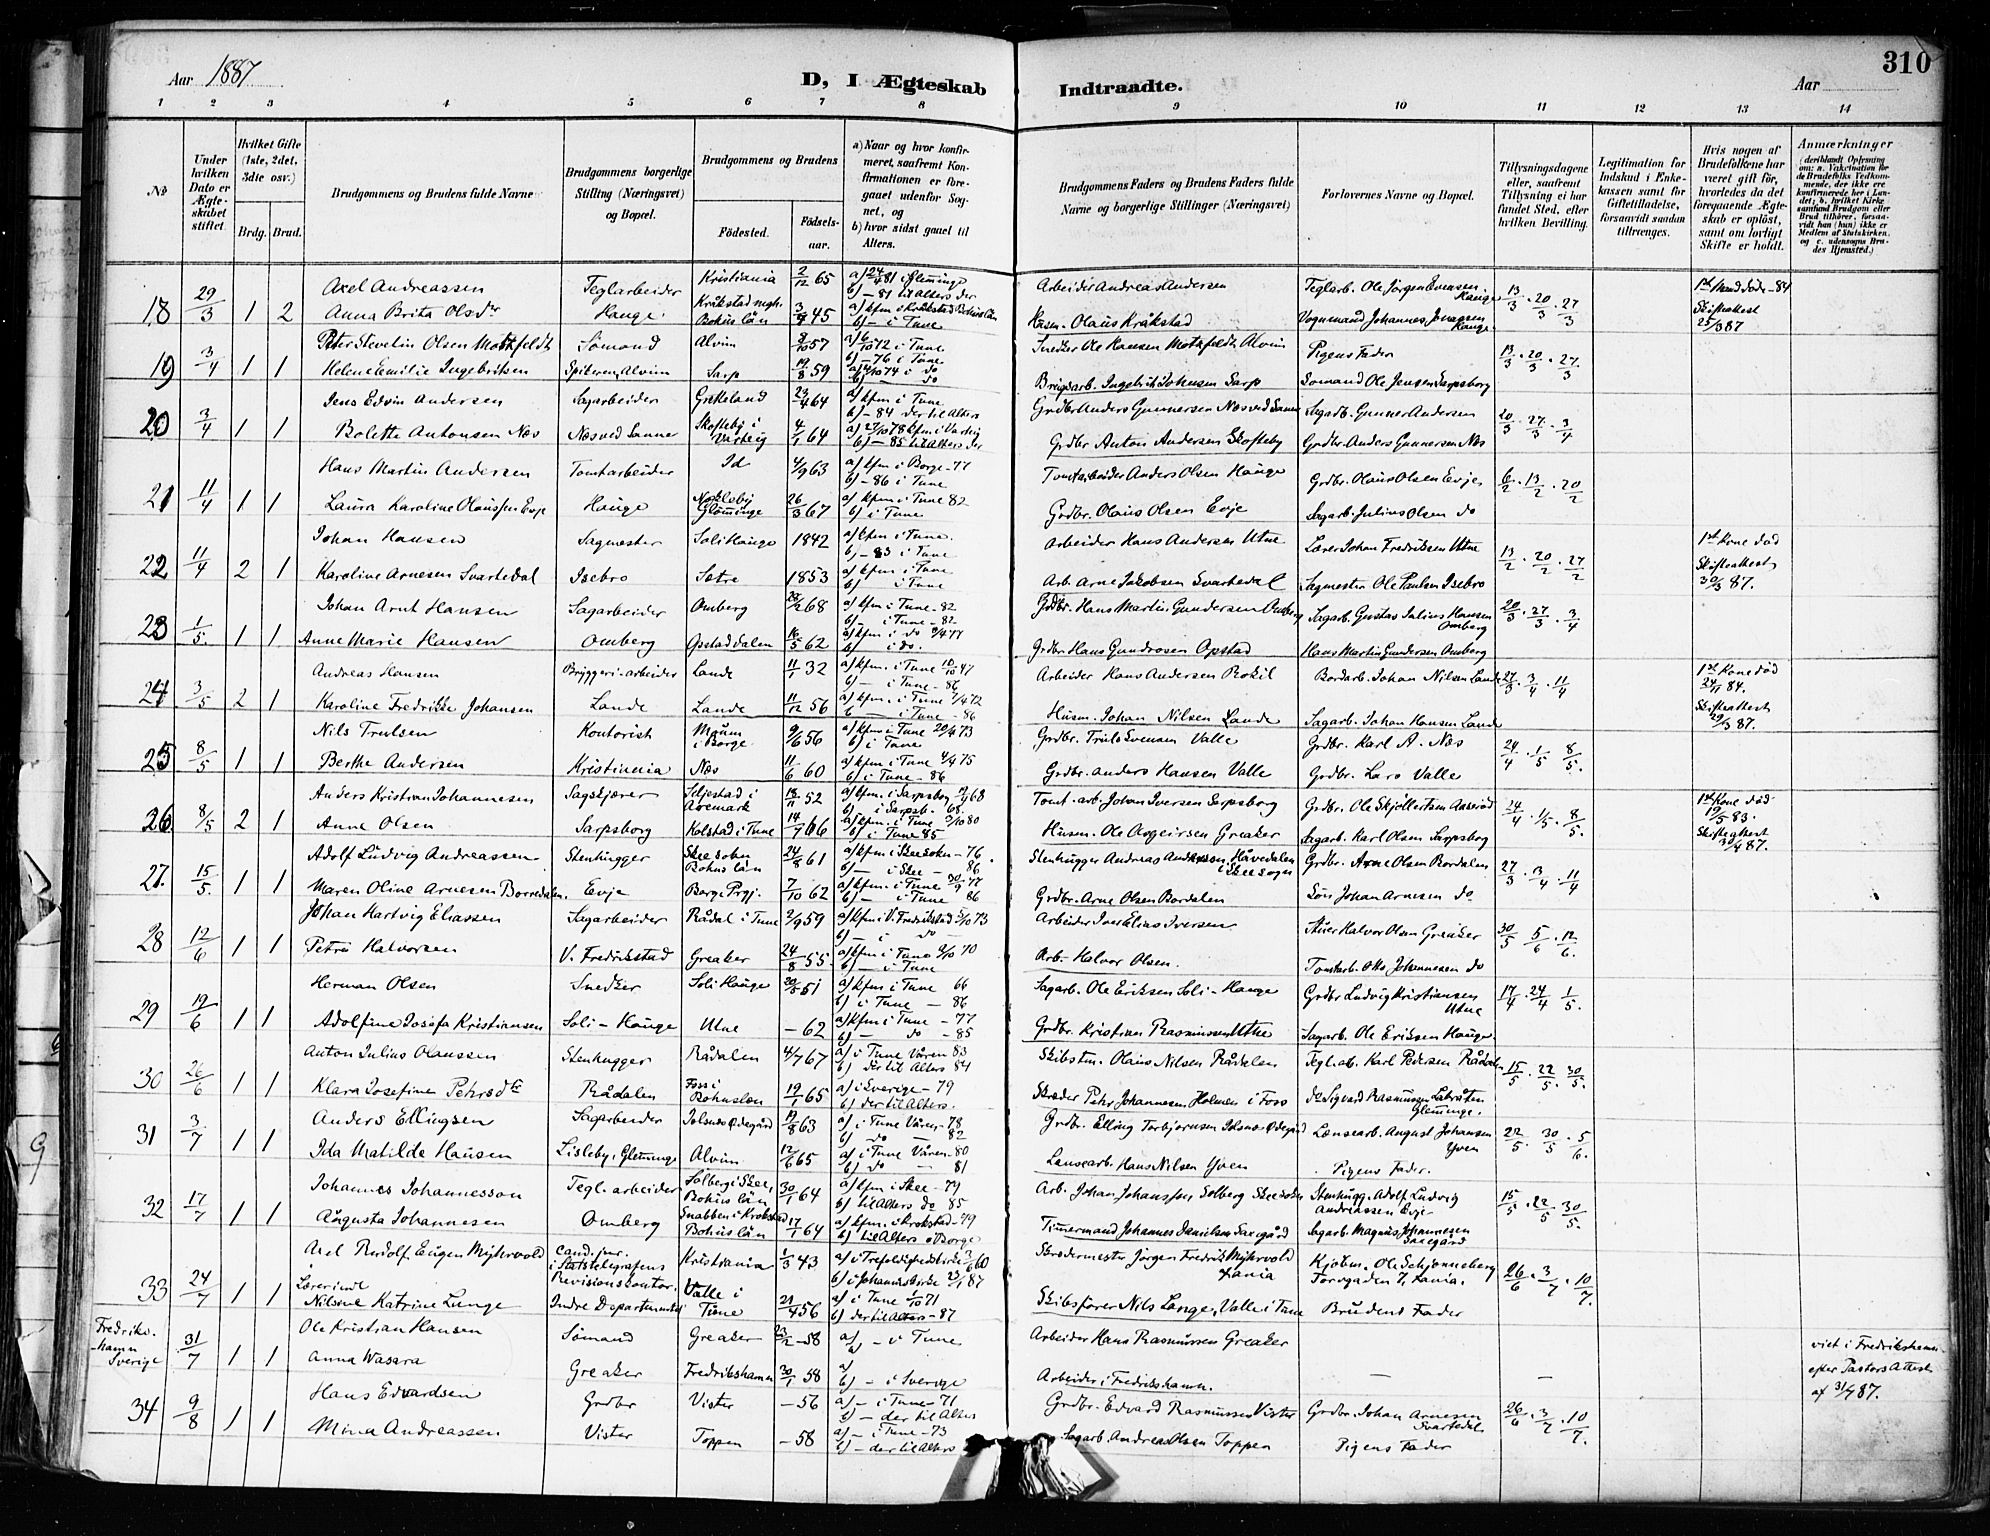 310
Aar 1887.
D, I Ægteskab Indtraadte.
Aar
1 2 3 4 5 6 7 8 9 10 11 12 13 14
No
Under hvilken Dato er Ægteskabet stiftet.
Hvilket Gifte (1ste, 2det, 3die osv.)
Brdg. Brud.
Brudgommens og Brudens fulde Navne
Brudgommens borgerlige Stilling (Næringsvei) og Bopæl.
Brudgommens og Brudens
Födested. Födselsaar.
a) Naar og hvor konfirmeret, saafremt Konfirmationen er foregaaet udenfor Sognet, og
b) hvor sidst gaaet til Alters.
Brudgommens Faders og Brudens Faders fulde Navne og borgerlige Stillinger (Næringsvei)
Forlovernes Navne og Bopæl.
Tillysningsdagene eller, saafremt Tillysning ei har fundet Sted, efter hvilken Bevilling.
Legitimation for Indskud i Enkekassen samt for Giftetilladelse, forsaavidt saadan tiltrænges.
Hvis nogen af Brudefolkene har været gift för, hvorledes da det foregaaende Ægteskab er oplöst, samt om lovligt Skifte er holdt.
Anmærkninger
18 29/3 1 2
Axel Andreassen Teglarbeider Kristiania 2/12 65 a) 24/4 81 i Glemminge
b) - 81 til Alters der
Anna Brita Olsdr Hauge Kråkstad Bohuslän 3/9 45 a) kfm i Kråkstad Bohuslän
b) - i Tune
Arbeider Andreas Andersen Teglarb. Ole Jörgen Evensen Hauge 13/3 . 20/3 . 27/3 1st Mand döde - 84
Husm. Olaus Kråkstad Vognmand Johannes Jonassen Hauge. Skifteattest 25/3 87
19 3/4 1 1
Peter Severin Olsen Mostfeldt Sömand Alvim 2/10 57 a) 6/10 72 i Tune
b) - 76 i Tune
Helene Emilie Ingebritsen Alvim Sarp 19/8 59 74 i do
b) - do
Snedker Ole Hansen Mostfeldt Alvim Pigens Fader 13/3 . 20/3 . 27/3
Brugsarb. Ingebrit Johnsen Sarp Sömand Ole Jensen Sarpsborg
20 3/4 1 1
Jens Edvin Andersen Sagarbeider Grekeland 23/4 64 a) kfm i Tune
b) - 84 der til Alters
Bolette Antonsen Næs Næs ved Sanne Skofteby i Varteig 4/1 64 a) 27/10 78 kfm i Varteig
b) - 85 til Alters der
Grdbr Anders Gunnersen Næs ved Sanne Sagarb. Gunner Andersen 20/3 . 27/3 . 3/4
Grdbr Anton Andersen Skofteby Grdbr Anders Gunnersen Næs
21 11/4 1 1
Hans Martin Andersen Tomtarbeider Id 4/9 63 a) kfm i Borge - 77
b) - 86 i Tune
Laura Karoline Olaussen Evje Hauge Nokleby Glemminge 26/3 67 a) kfm i Tune 82
b) i Tune
Tomtarbeider Anders Olsen Hauge Grdbr. Olaus Olsen Evje 6/2 . 13/2 . 20/2
Grdbr. Olaus Olsen Evje Sagarb. Julius Olsen do
22 11/4 2 1
Johan Hansen Sagmester Soli Hauge 1842 a) kfm i Tune.
b) - 83 i Tune
Karoline Arnesen Svartedal Isebro Sætre 1853 a) kfm i Tune
b) - i Tune
Arbeider Hans Andersen Utne Lærer Johan Fredriksen Utne 13/2 . 20/2 . 27/2 1st Kone död
Arb. Arne Jakobsen Svartedal Sagmester Ole Paulsen Isebro Skifteattest 30/3 87.
23 1/5 1 1
Johan Arnt Hansen Sagarbeider Omberg 28/2 68 a) kfm i Tune - 82
b) - i Tune - 82
Anne Marie Hansen Omberg Opstaddalen 16/5 62 a) kfm i do 8/4 77
b) i do.
Grdbr. Hans Martin Gundersen Omberg Sagarb. Gustav Julius Hansen Omberg 20/3 . 27/3 . 3/4
Grdbr Hans Gundrosen Opstad Hans Martin Gundersen Omberg
24 3/5 2 1
Andreas Hansen Bryggeri-arbeider Lande 11/1 32 a) kfm. i Tune 10/10 47
b) - i Tune - 86
Karoline Fredrikke Johansen Lande Lande 11/12 56 a) kfm. i Tune 7/4 72
b) - i Tune - 86
Arbeider Hans Andersen Rokil Bordarb. Johan Nilsen Lande 27/3 . 3/4 . 11/4 1st Kone död 24/11 84.
Husm. Johan Nilsen Lande Sagarb. Johan Hansen Lande Skifteattest 29/3 87.
25 8/5 1 1
Nils Trulsen Kontorist Moum i Borge 9/6 56 a) kfm i Tune 20/4 73
b) i Tune
Berthe Andersen Kristiania Næs 11/6 60 a) kfm i Tune 4/4 75
b) i Tune - 86
Grdbr. Truls Svensen Valle Grdbr. Karl A. Næs 24/4 . 1/5 8/5.
Grdbr. Anders Hansen Valle Grdbr. Lars Valle
26 8/5 2 1
Anders Kristian Johannesen Sagskjærer Siljestad i Aremark 18/11 52 a) kfm. i Sarpsborg 68
b) - i Sarpsb. 68.
Anne Olsen Sarpsborg Kolstad i Tune 14/7 66 a) kfm i Tune 3/10 80
b) i Tune 85
Tomt.arb. Johan Iversen Sarpsborg Grdbr. Ole Skjöllertsen 24/4 . 1/5 . 8/5. 1st Kone död 19/5 83.
Husm. Ole Asgeirsen Greaker Sagarb. Karl Olsen Sarpsborg Skifteattest 30/4 87.
27. 15/5. 1 1
Adolf Ludvig Andreassen Stenhugger Skee sokn Bohus län 24/8 61 a) kfm i Skee sokn - 76
b) - i Skee - 86
Maren Oline Arnesen Borredalen. Evje Borge Prgj. 7/10 62 a) kfm. i Tune 30/9 77
b) - i Tune 86
Stenhugger Andreas Andersson Håvedalen i Skee sogn Grdbr. Arne Olsen Bordalen 27/3 . 3/4 . 11/4
Grdbr. Arne Olsen Bordalen Sön Johan Arnesen do
28 12/6 1 1
Johan Hartvig Eliassen Sagarbeider Rådal i Tune 2/9 59 a) kfm i V. Fredrikstad 5/10 73
b) - i do -
Petra Halvorsen V. Fredrikstad Greaker 24/8 55. a) kfm i Tune 9/10 70
b) - i Tune
Arbeider Iver Elias Iversen Halvor Olsen Greaker 30/5 5/6 . 12/6.
Arb. Halvor Olsen. Tomtarb. Otto Johannesen do
29 19/6 1 1
Herman Olsen Snedker Soli Hauge 20/5 51 a) kfm i Tune 66
b) i Tune - 86
Adolfine Josefa Kristiansen Soli - Hauge Utne - 62 a) kfm i Tune - 77
b) - do - 85
Sagarb. Ole Eriksen Soli - Hauge Grdbr Ludvig Kristiansen Utne 17/4 . 24/4 1/5
Grdbr. Kristian Rasmussen Utne Sagarb. Ole Eriksen Hauge.
30 26/6 1 1
Anton Julius Olaussen Stenhugger Rådalen 4/7 67 a) i Tune Våren 83
b) der til Alters 84
Klara Josefine Petersdtr Rådalen Foss i Bohuslen 19/1 65 a) i Sverige - 79
b) der til Alters.
Skibstm. Olaus Nilsen Rådalen Tegl.ab. Karl Pedersen Rådal 15/5 . 22/5. 30/5.
Skræder Petr Johannesen Holmen i Foss Do Sigvard Rasmussen Labråten Glemminge.
31 3/7 1 1
Anders Ellingsen Sagarbeider 19/8 63 a) i Tune Våren - 78
b) do - 82
Ida Matilde Hansen Lisleby, Glemminge Alvim 12/6 65 a) i Tune Våren - 80
b) do - 81
Grdbr. Elling Torbjornsen Lænsearb. August Johansen Yven 22/5. 30/5 . 5/6.
Lænsearb. Hans Nilsen Yven Pigens Fader.
32 17/7 1 1
Johannes Johannesson Tegl.arbeider Solberg i Skee, Bohus län 30/1 64 a) kfm i Skee - 79
b) til Alters do 85
Augusta Johannesen Omberg Snabben i Krokstad Bohus län 17/1 64 a) kfm. i Krokstad - 79
b) til Alters i Borge
Arb. Johan Johansson Solberg Skee sokn Stenhugg. Adolf Ludvig Andreassen Evje - 15/5 . 22/5 . 30/5.
Timmermand Johannes Danielsen Saxegård Sagarb. Magnus Johannesen Saxegård
33 24/7 1 1
Axel Rudolf Eugen Myhrvold cand. jur. i Statstelegrafens Revisionskontor, Indre Departementet Kristiania 1/3 43 a) i Trefoldighedskirke 3/6 60
b) i Johanneskirke 23/1 87
Lærerinde
Nilsine Katrine Lange Valle i Tune 21/4 56 a) i Tune 1/10 71
b) der til Alters - 87
Skrædermester Jörgen Fredrik Myhrvold Xania Kjöbm. Ole Schjönneberg Torvgaden 7, Xania. 26/6 . 3/7 . 10/7.
Skibsförer Nils Lange, Valle i Tune Brudens Fader
Fredrikshamn Sverige 31/7 1 1
Ole Kristian Hansen Sömand Greaker 23/2 - 58 a) - i Tune
Anna Wasara Greaker Fredrikshamn 30/1 58 a)
b) - i Sverige
Arbeider Hans Rasmussen Greaker
Arbeider i Fredrikshamn. — —
viet i Fredrikshamn efter Pastors Attest af 31/7 87.
34 9/8 1 1
Hans Edvardsen Grdbr Vister - 56 a) - i Tune - 71
b) - der til Alters
Mina Andreassen Vister Toppen - 58 a) - i Tune - 73
b) - der til Alters
Grdbr. Edvard Rasmussen Vister Grdbr. Johan Arnesen Svartedal 26/6 . 3/7 . 10/7.
Sagarb. Andreas Olsen Toppen Pigens Fader